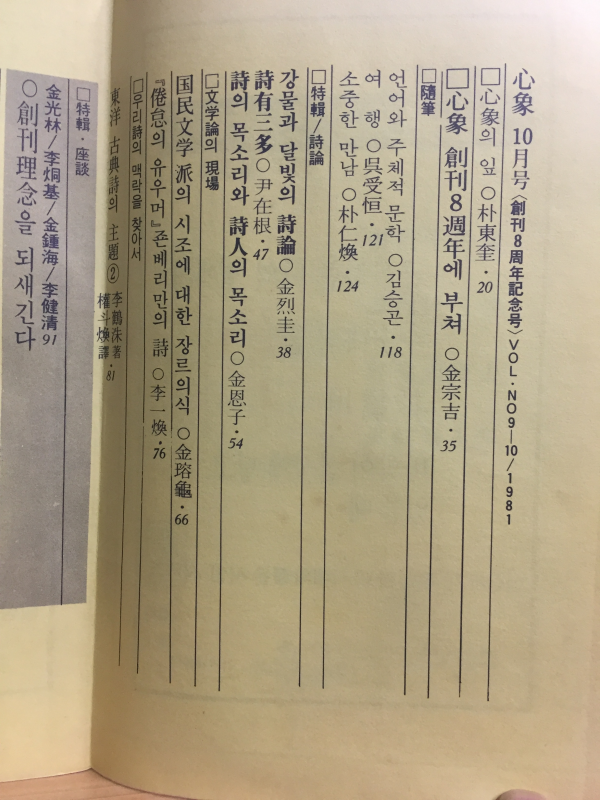 心象 10月号〈創刊8周年記念号〉VOL·NO9—10/1981
□心象의 잎 ○朴東奎·20
□心象 創刊8週年에 부쳐 ○金宗吉·35
□隨筆
언어와 주체적 문학 ○김승곤·118
여 행 ○吳受恒·121
소중한 만남 ○朴仁煥·124
□特輯/詩論
강물과 달빛의 詩論○金烈圭·38
詩有三多○尹在根·47
詩의 목소리와 詩人의 목소리○金恩子·54
□文学論의 現場
国民文学派의 시조에 대한 장르의식 ○金瑢龜·66
『倦怠의 유우머』죤베리만의 詩 ○李一煥·76
□우리詩의 맥락을 찾아서
東洋 古典詩의 主題② 李鶴洙著
權斗煥譯·81
□特輯·座談
金光林/李炯基/金鍾海/李健清91
○創刊理念을 되새긴다